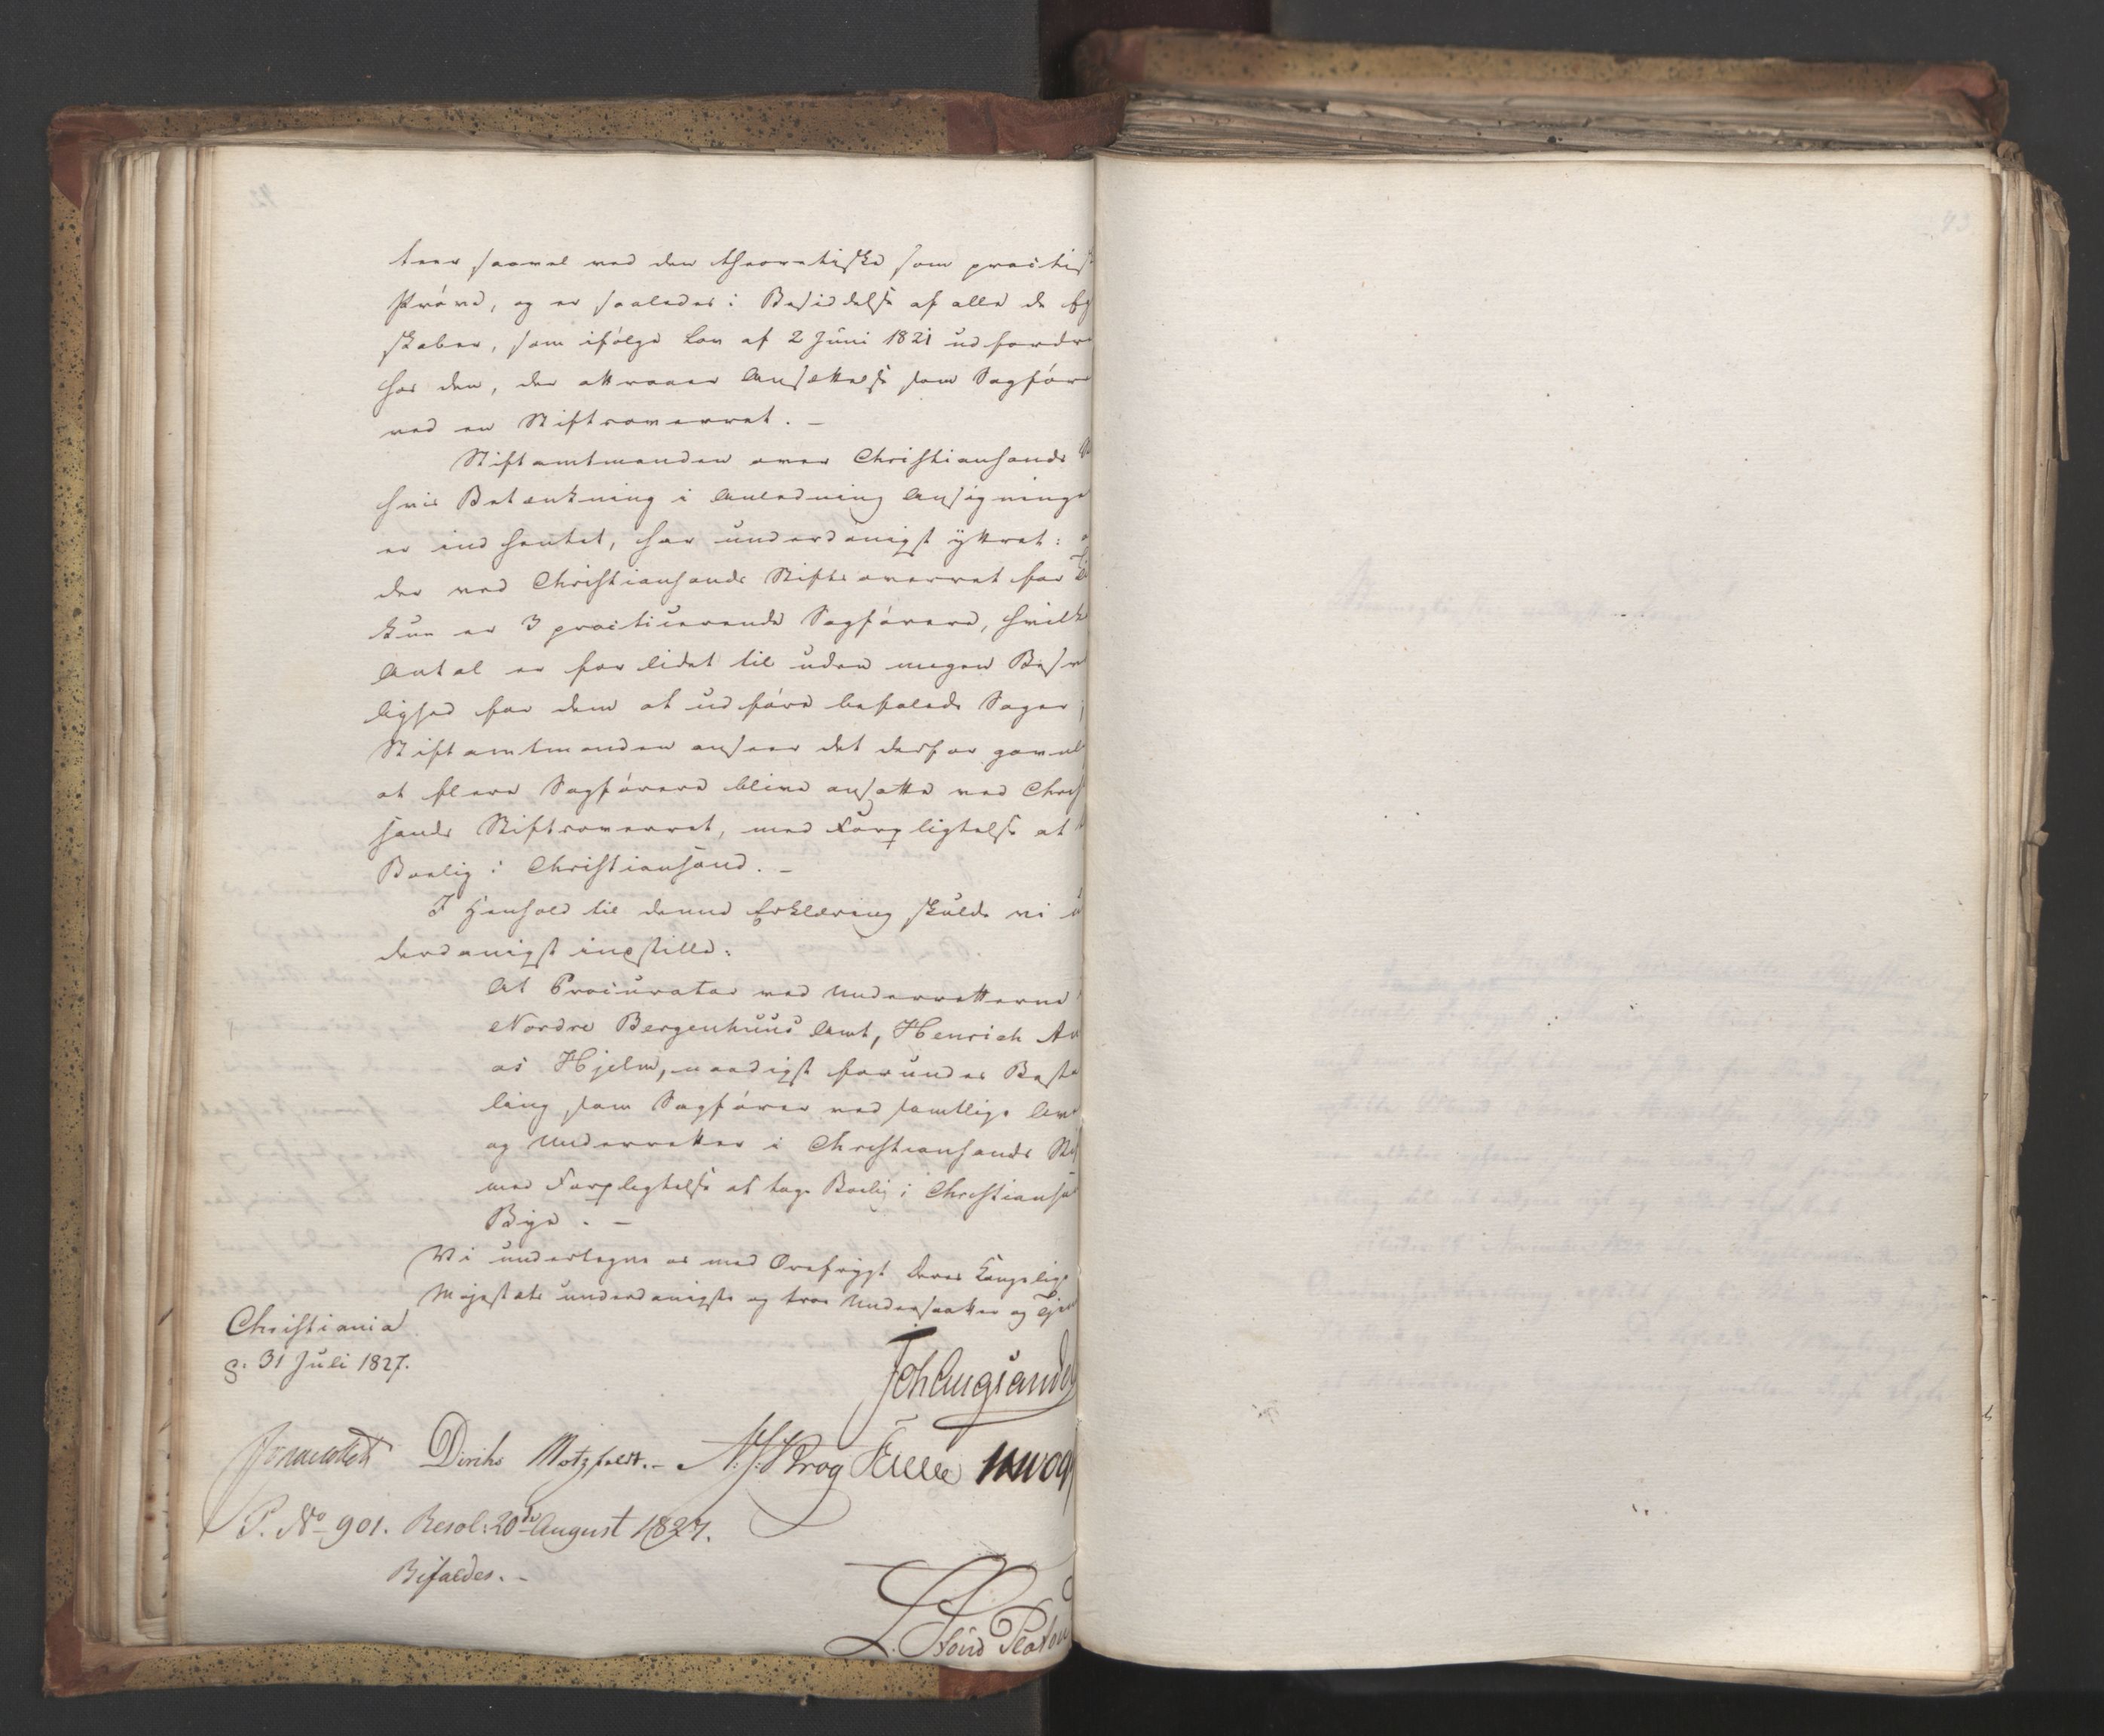 teer saavel ved den theoretiske som practisk
Prøve, og er saaledes i Besiddelse af alle de Eg
skaber, som ifølge Lov af 2 Juni 1821 udfordre
hos den, der attraaer Ansættelse som Sagfør
ved en Stiftsoverret. –
Stiftamtmanden over Christiansands
hvis Betænkning i Anledning Ansøgninge
er indhentet, har underdanigst yttret:
der ved Christiansands Stifts overret for
kun er 3 practicerende Sagførere, hvilk
Antal er for lidet til uden megen Besv
lighed for dem at udføre befalede Sager;
Stiftamtmanden anseer det derfor gavnl
at flere Sagførere blive ansatte ved Christ
sands Stiftsoverret, med Forpligtelse at
Boelig i Christiansand. –
I Henhold til denne Erklæring skulde vi u
derdanigst indstille:
At Procurator ved Underretterne
Nordre Bergenhuus Amt, Henrich An
as Hjelm, naadigst forundes Besta
ling som Sagfører ved samtlige Over
og Underretter i Christiansands Stif
med Forpligtelse at tage Boelig i Christiansa
Bye. –
Vi undertegne os med Ærefrygt Deres Kongelige
Majestæts underdanigste og troe Undersaatter og Tjen
Christiania
d. 31 Juli 1827.
Joh Aug Sande
Diriks Motzfeldt. – N. J. Krog
P. No 901. Resol: 20de August 1827.
Bifaldes. –
L. Stoud Platou